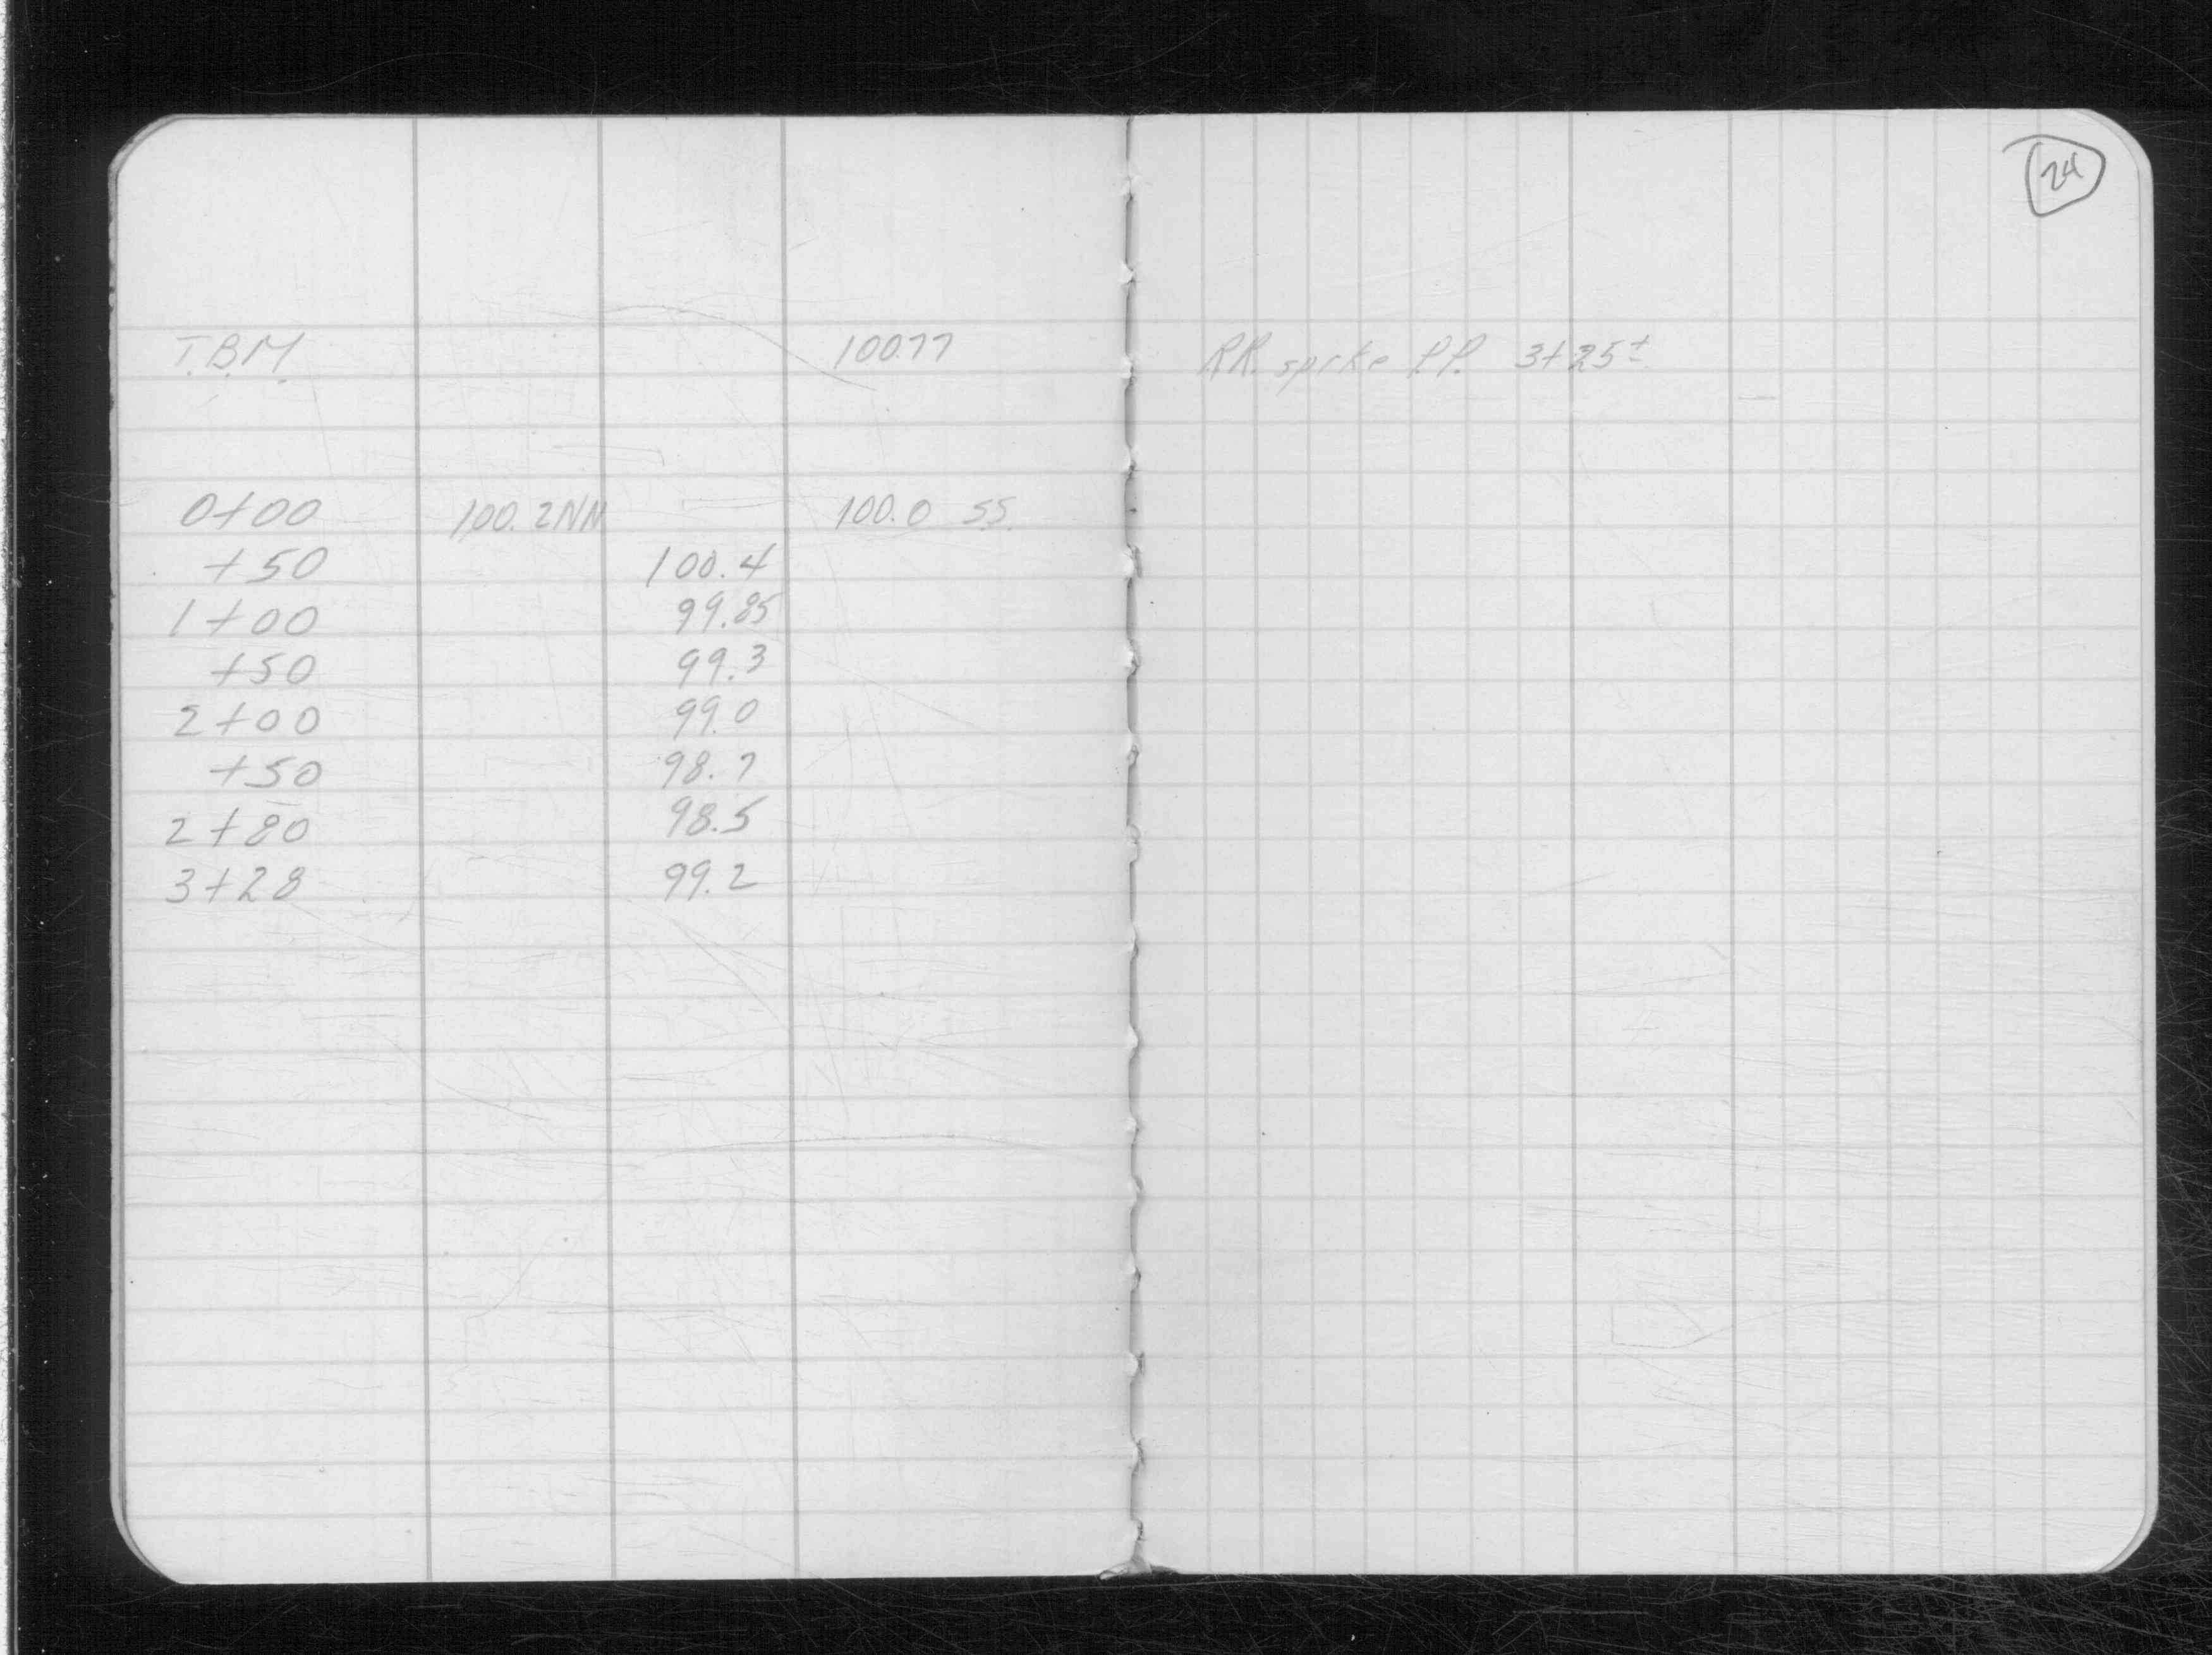 24
T.B.M. 100.77 R.R. spike P.P. 3+25±
0+00 100.2NN 100.0 S.S.
+50 100.4
1+00 99.85
+50 99.3
2+00 99.0
+50 98.7
2+80 98.5
3+28 99.2